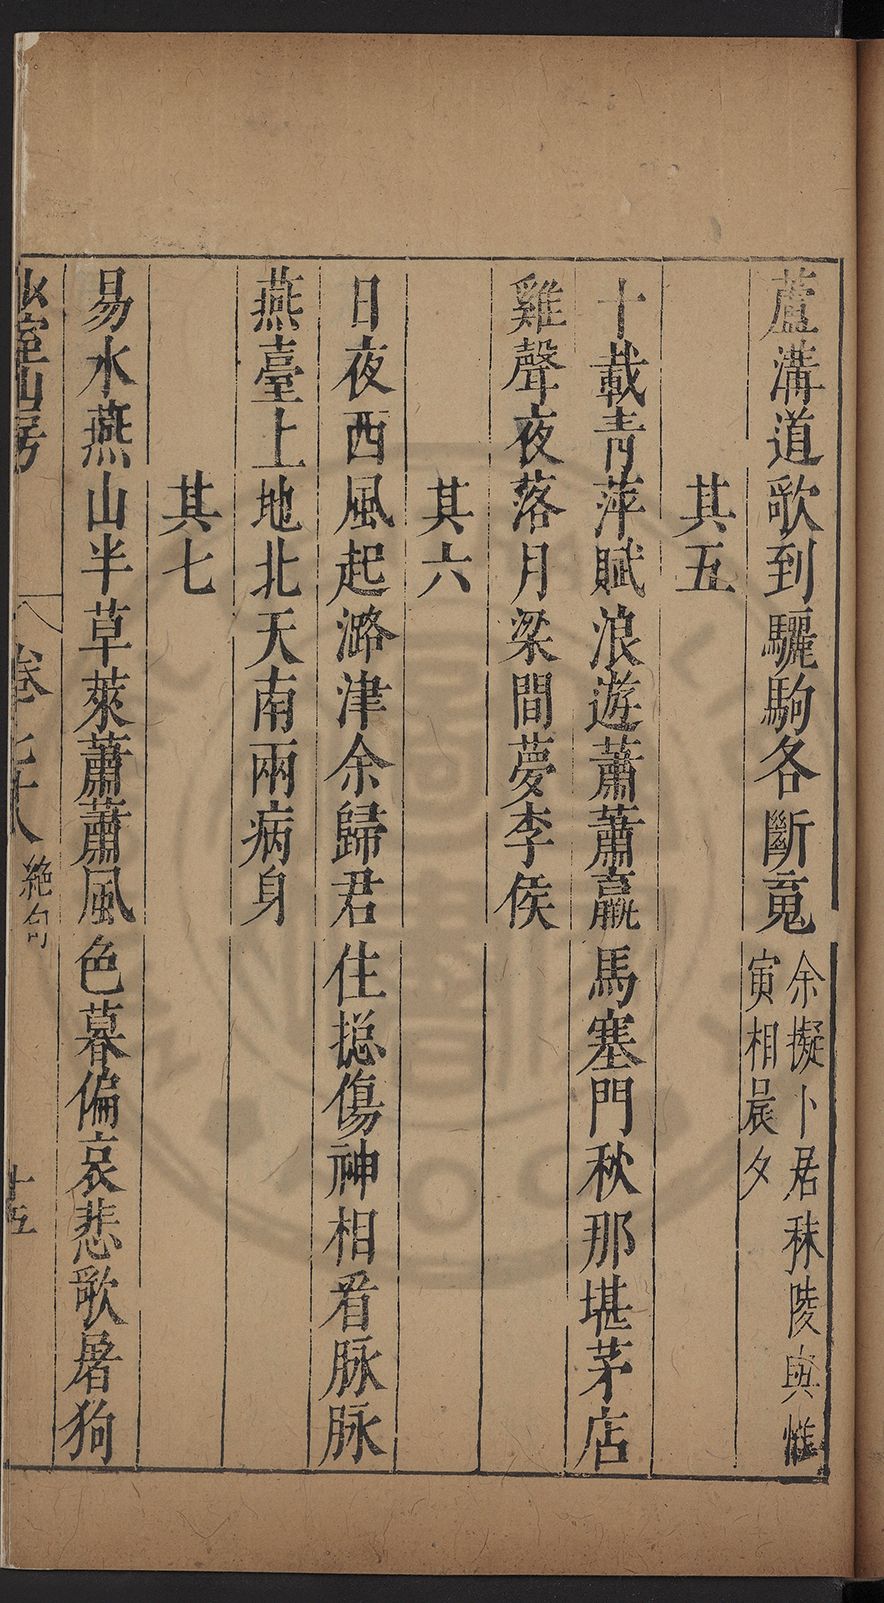 蘆溝道歌到驪駒各斷䰟
余擬卜居秣陵與惟
寅相晨夕
其五
十載青萍賦浪遊蕭蕭羸馬塞門秋那堪茅店
雞聲夜落月梁間夢李侯
其六
日夜西風起潞津余歸君住揔傷神相看脉脉
燕臺上地北天南兩病身
其七
易水燕山半草萊蕭蕭風色暮偏哀悲歌屠狗
室山房
卷七十八
絶句
十五